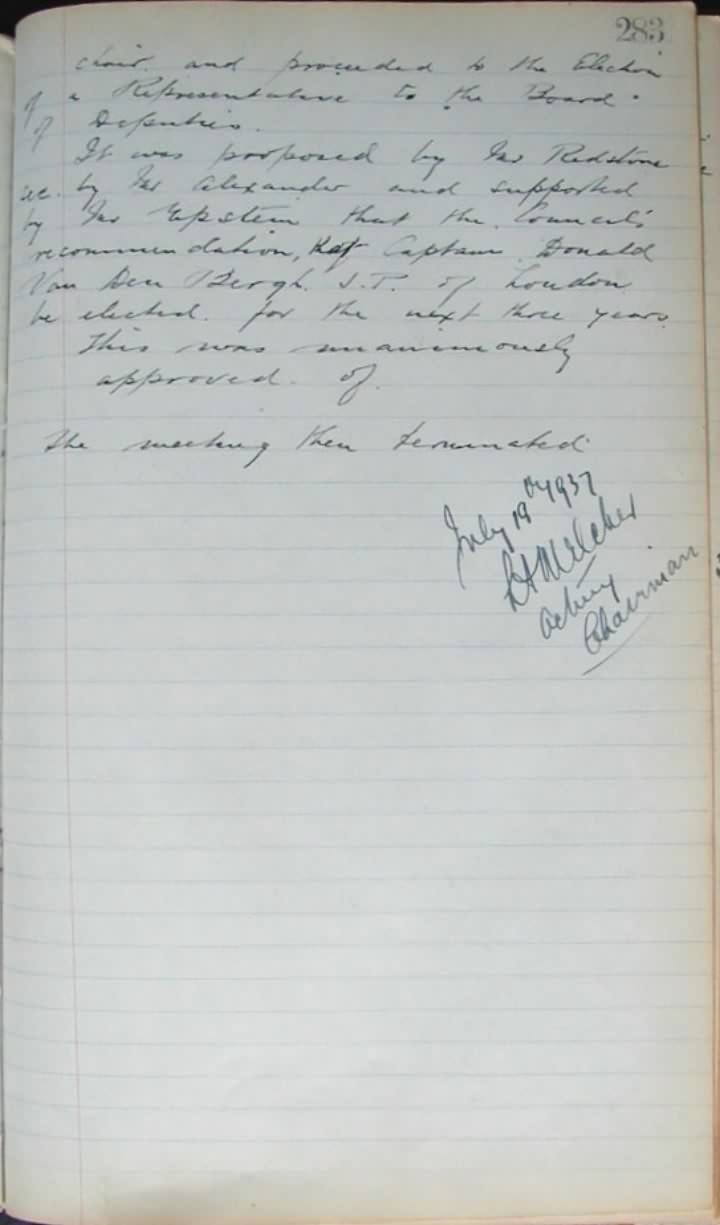 283
chair. and proceeded to the Election
of a Representative to the Board
of Deputies.
It was proposed by Mr Redstone
sec. by Mr Alexander and supported
by Mr Epstein that the Council's
recommendation, that Captain Donald
Van Den Bergh. J.P. of London
be elected. for the next three years.
This was unanimously
approved. of.
The meeting then terminated
July 19th 1937
Melcher
Acting
Chairman